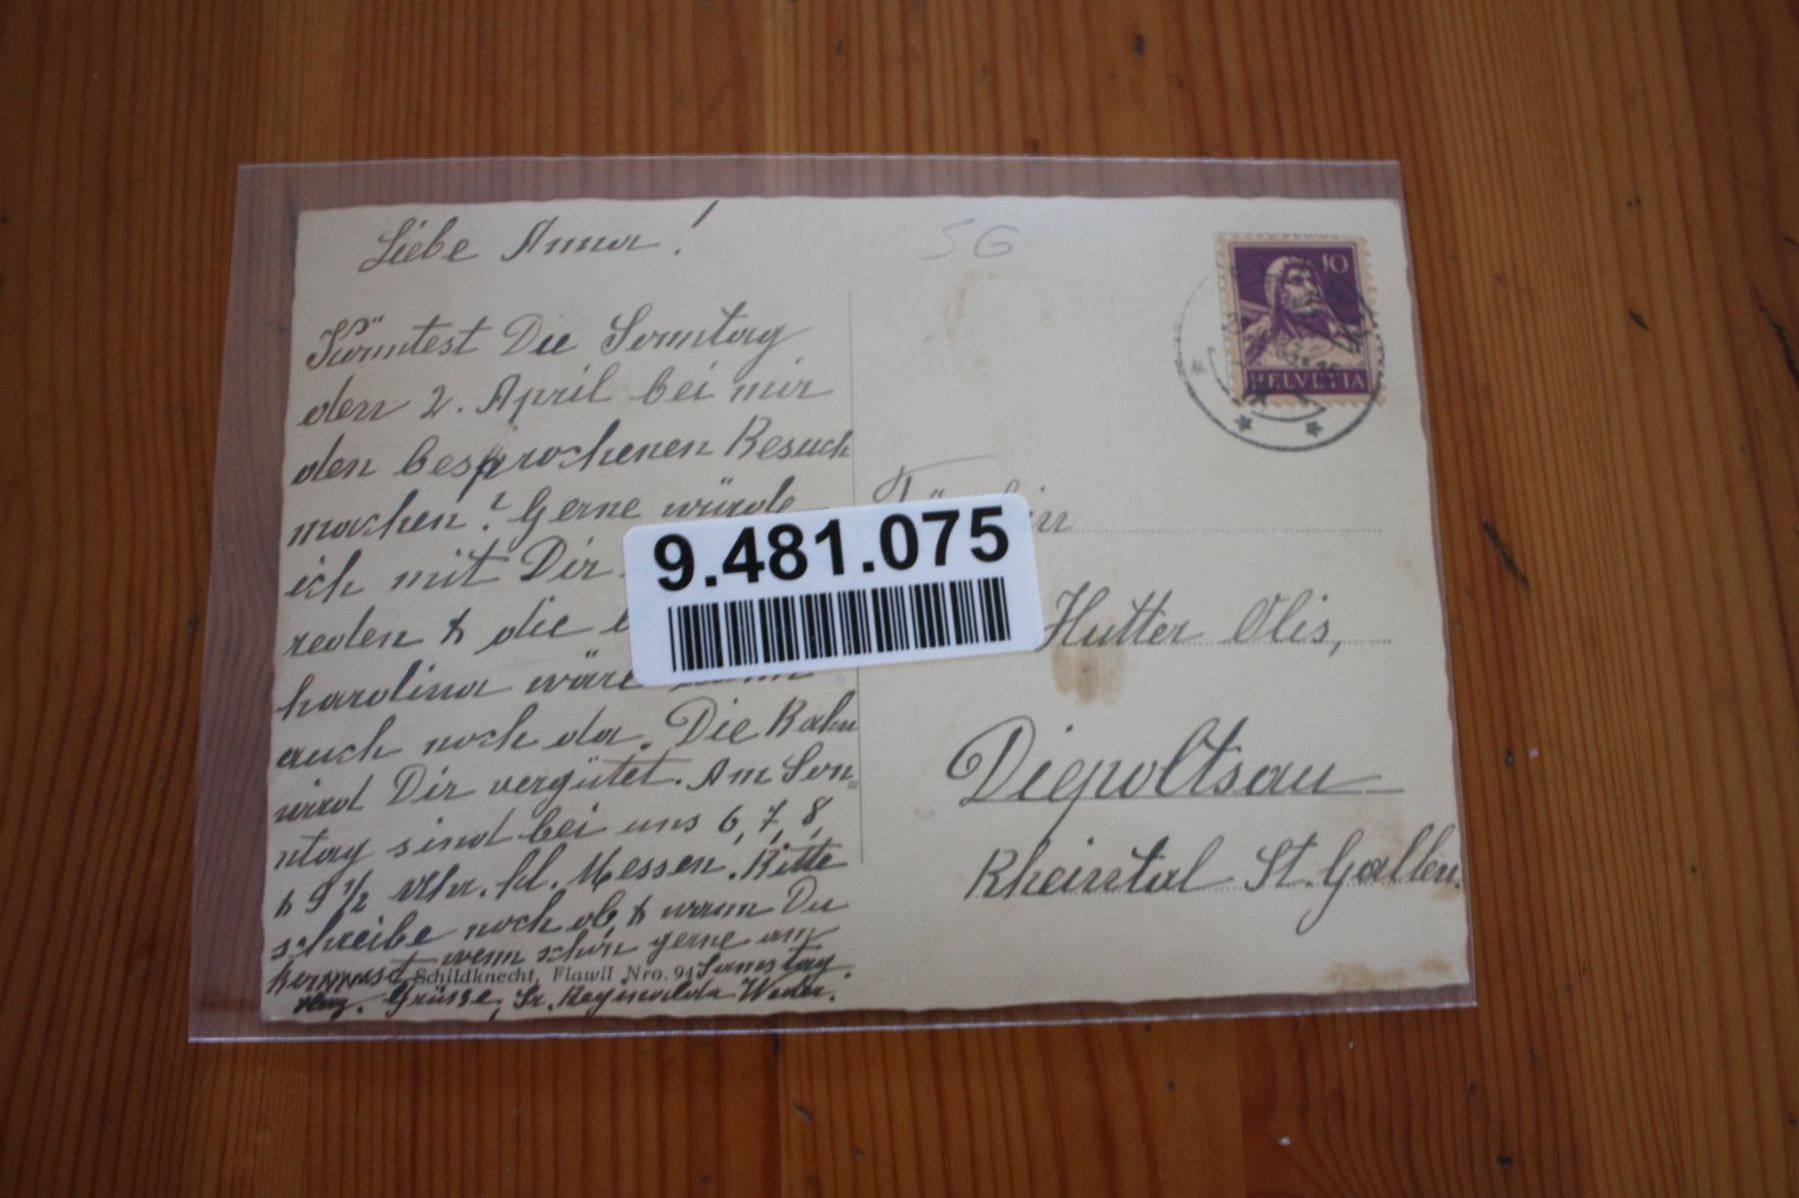 Liebe Anna!
Könntest Die Sonntag
den 2. April bei mir
den besprochenen Besuch
machen? Gerne würde
ich mit Dir
reden & die
Karolina wäre dann
auch noch da. Die Bahn
wird Dir vergütet. Am Son=
ntag sind bei uns 6, 7, 8,
& 9 1/2 Uhr. hl. Messen. Bitte
schreibe noch ob & wann Du
kommst wenn schön gerne am
Samstag.
Grüsse, Sr. Reginalda Weder.
Schildknecht, Flawil Nro. 94
SG
10
HELVETIA
9.481.075
Hutter Olis,
Diepoltsau
Rheintal St. Gallen.